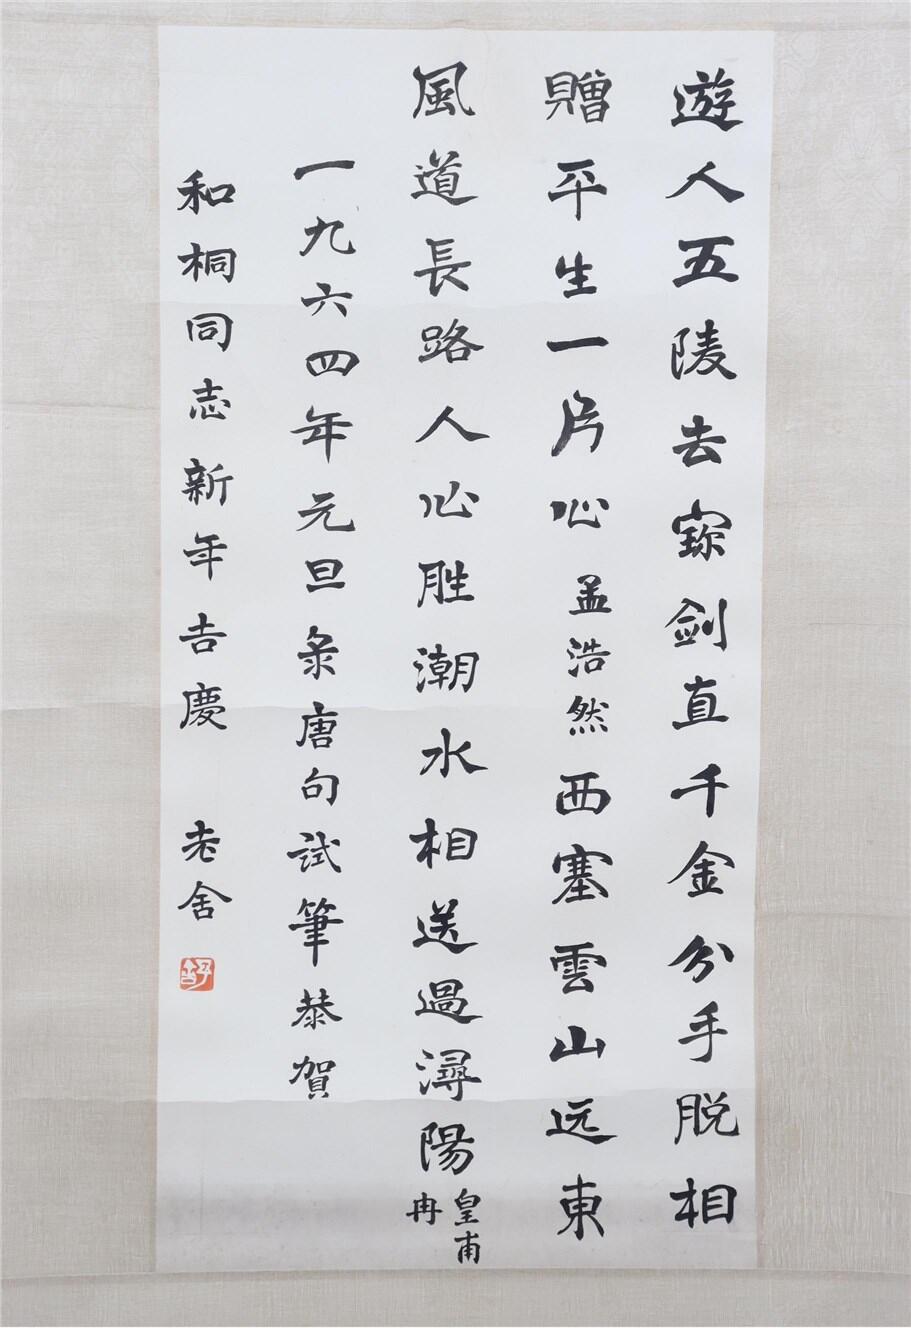 遊人五陵去寳剑直千金分手脱相
贈平生一片心孟浩然西塞雲山远東
風道長路人心胜潮水相送過潯陽皇甫冉
一九六四年元旦彔唐句試筆恭賀
和桐同志新年吉慶 老舍
舒